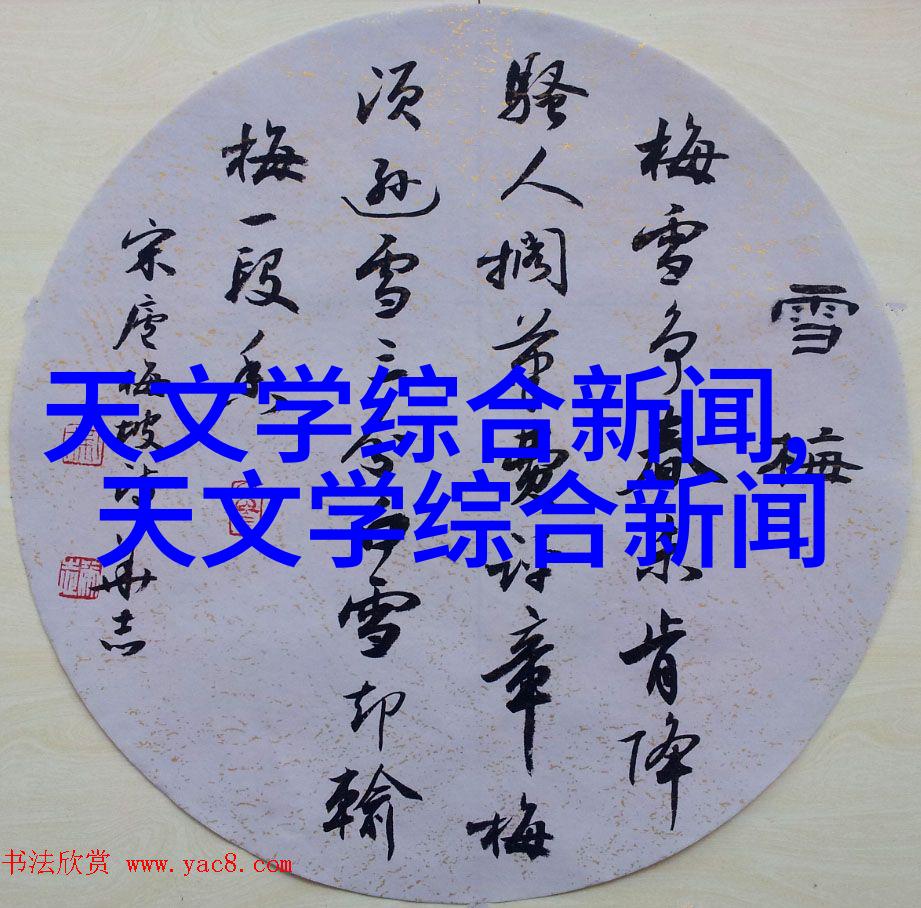 雪梅
梅雪争春未肯降
騷人擱筆費評章梅
須遜雪三分白雪却輸
梅一段香
宋盧梅坡詩
志
天文学综合新闻,
天文学综合新闻
书法欣赏 www.yac8.com